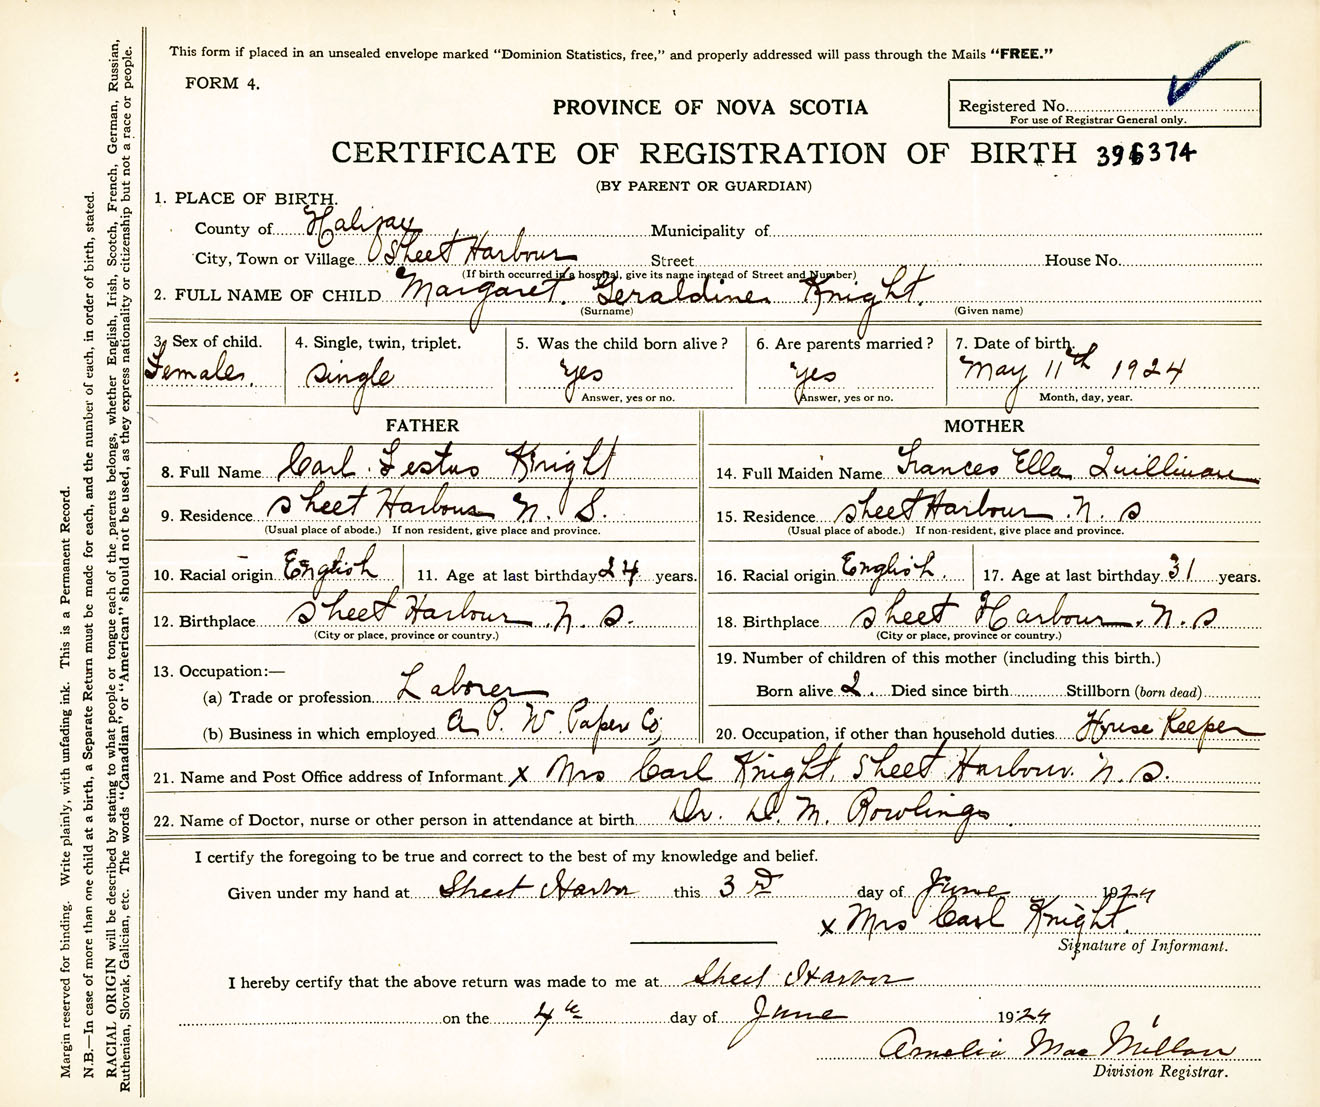 This form if placed in an unsealed envelope marked "Dominion Statistics, free," and properly addressed will pass through the Mails "FREE."
FORM 4.
PROVINCE OF NOVA SCOTIA
Registered No.
For use of Registrar General only.
CERTIFICATE OF REGISTRATION OF BIRTH 396374
(BY PARENT OR GUARDIAN)
1. PLACE OF BIRTH.
County of Halifax Municipality of
City, Town or Village Sheet Harbour Street House No.
(If birth occurred in a hospital, give its name instead of Street and Number)
2. FULL NAME OF CHILD Margaret. Geraldine Knight.
(Surname) (Given name)
3. Sex of child. 4. Single, twin, triplet. 5. Was the child born alive? 6. Are parents married? 7. Date of birth.
Female. single Yes Yes May 11th 1924
Answer, yes or no. Answer, yes or no. Month, day, year.
FATHER
8. Full Name Carl Festus Knight
9. Residence Sheet Harbour N. S.
(Usual place of abode.) If non resident, give place and province.
10. Racial origin English 11. Age at last birthday 24 years.
12. Birthplace Sheet Harbour. N. S.
(City or place, province or country.)
13. Occupation:—
(a) Trade or profession Laborer
(b) Business in which employed A. P. W. Paper Co,
MOTHER
14. Full Maiden Name Frances Ella Quillinan
15. Residence Sheet Harbour. N. S
(Usual place of abode.) If non-resident, give place and province.
16. Racial origin English. 17. Age at last birthday 31 years.
18. Birthplace Sheet Harbour. N. S
(City or place, province or country.)
19. Number of children of this mother (including this birth.)
Born alive 2 Died since birth Stillborn (born dead)
20. Occupation, if other than household duties House Keeper
21. Name and Post Office address of Informant x Mrs Carl Knight. Sheet Harbour. N. S.
22. Name of Doctor, nurse or other person in attendance at birth Dr. D. M. Rowlings
I certify the foregoing to be true and correct to the best of my knowledge and belief.
Given under my hand at Sheet Harbor this 3rd day of June 1924
x Mrs Carl Knight.
Signature of Informant.
I hereby certify that the above return was made to me at Sheet Harbor
on the 4th day of June 1924
Amelia MacMillan
Division Registrar.
Margin reserved for binding. Write plainly, with unfading ink. This is a Permanent Record.
N.B.—In case of more than one child at a birth, a Separate Return must be made for each, and the number of each, in order of birth, stated.
RACIAL ORIGIN will be described by stating to what people or tongue each of the parents belongs, whether English, Irish, Scotch, French, German, Russian,
Ruthenian, Slovak, Galician, etc. The words "Canadian" or "American" should not be used, as they express nationality or citizenship but not a race or people.